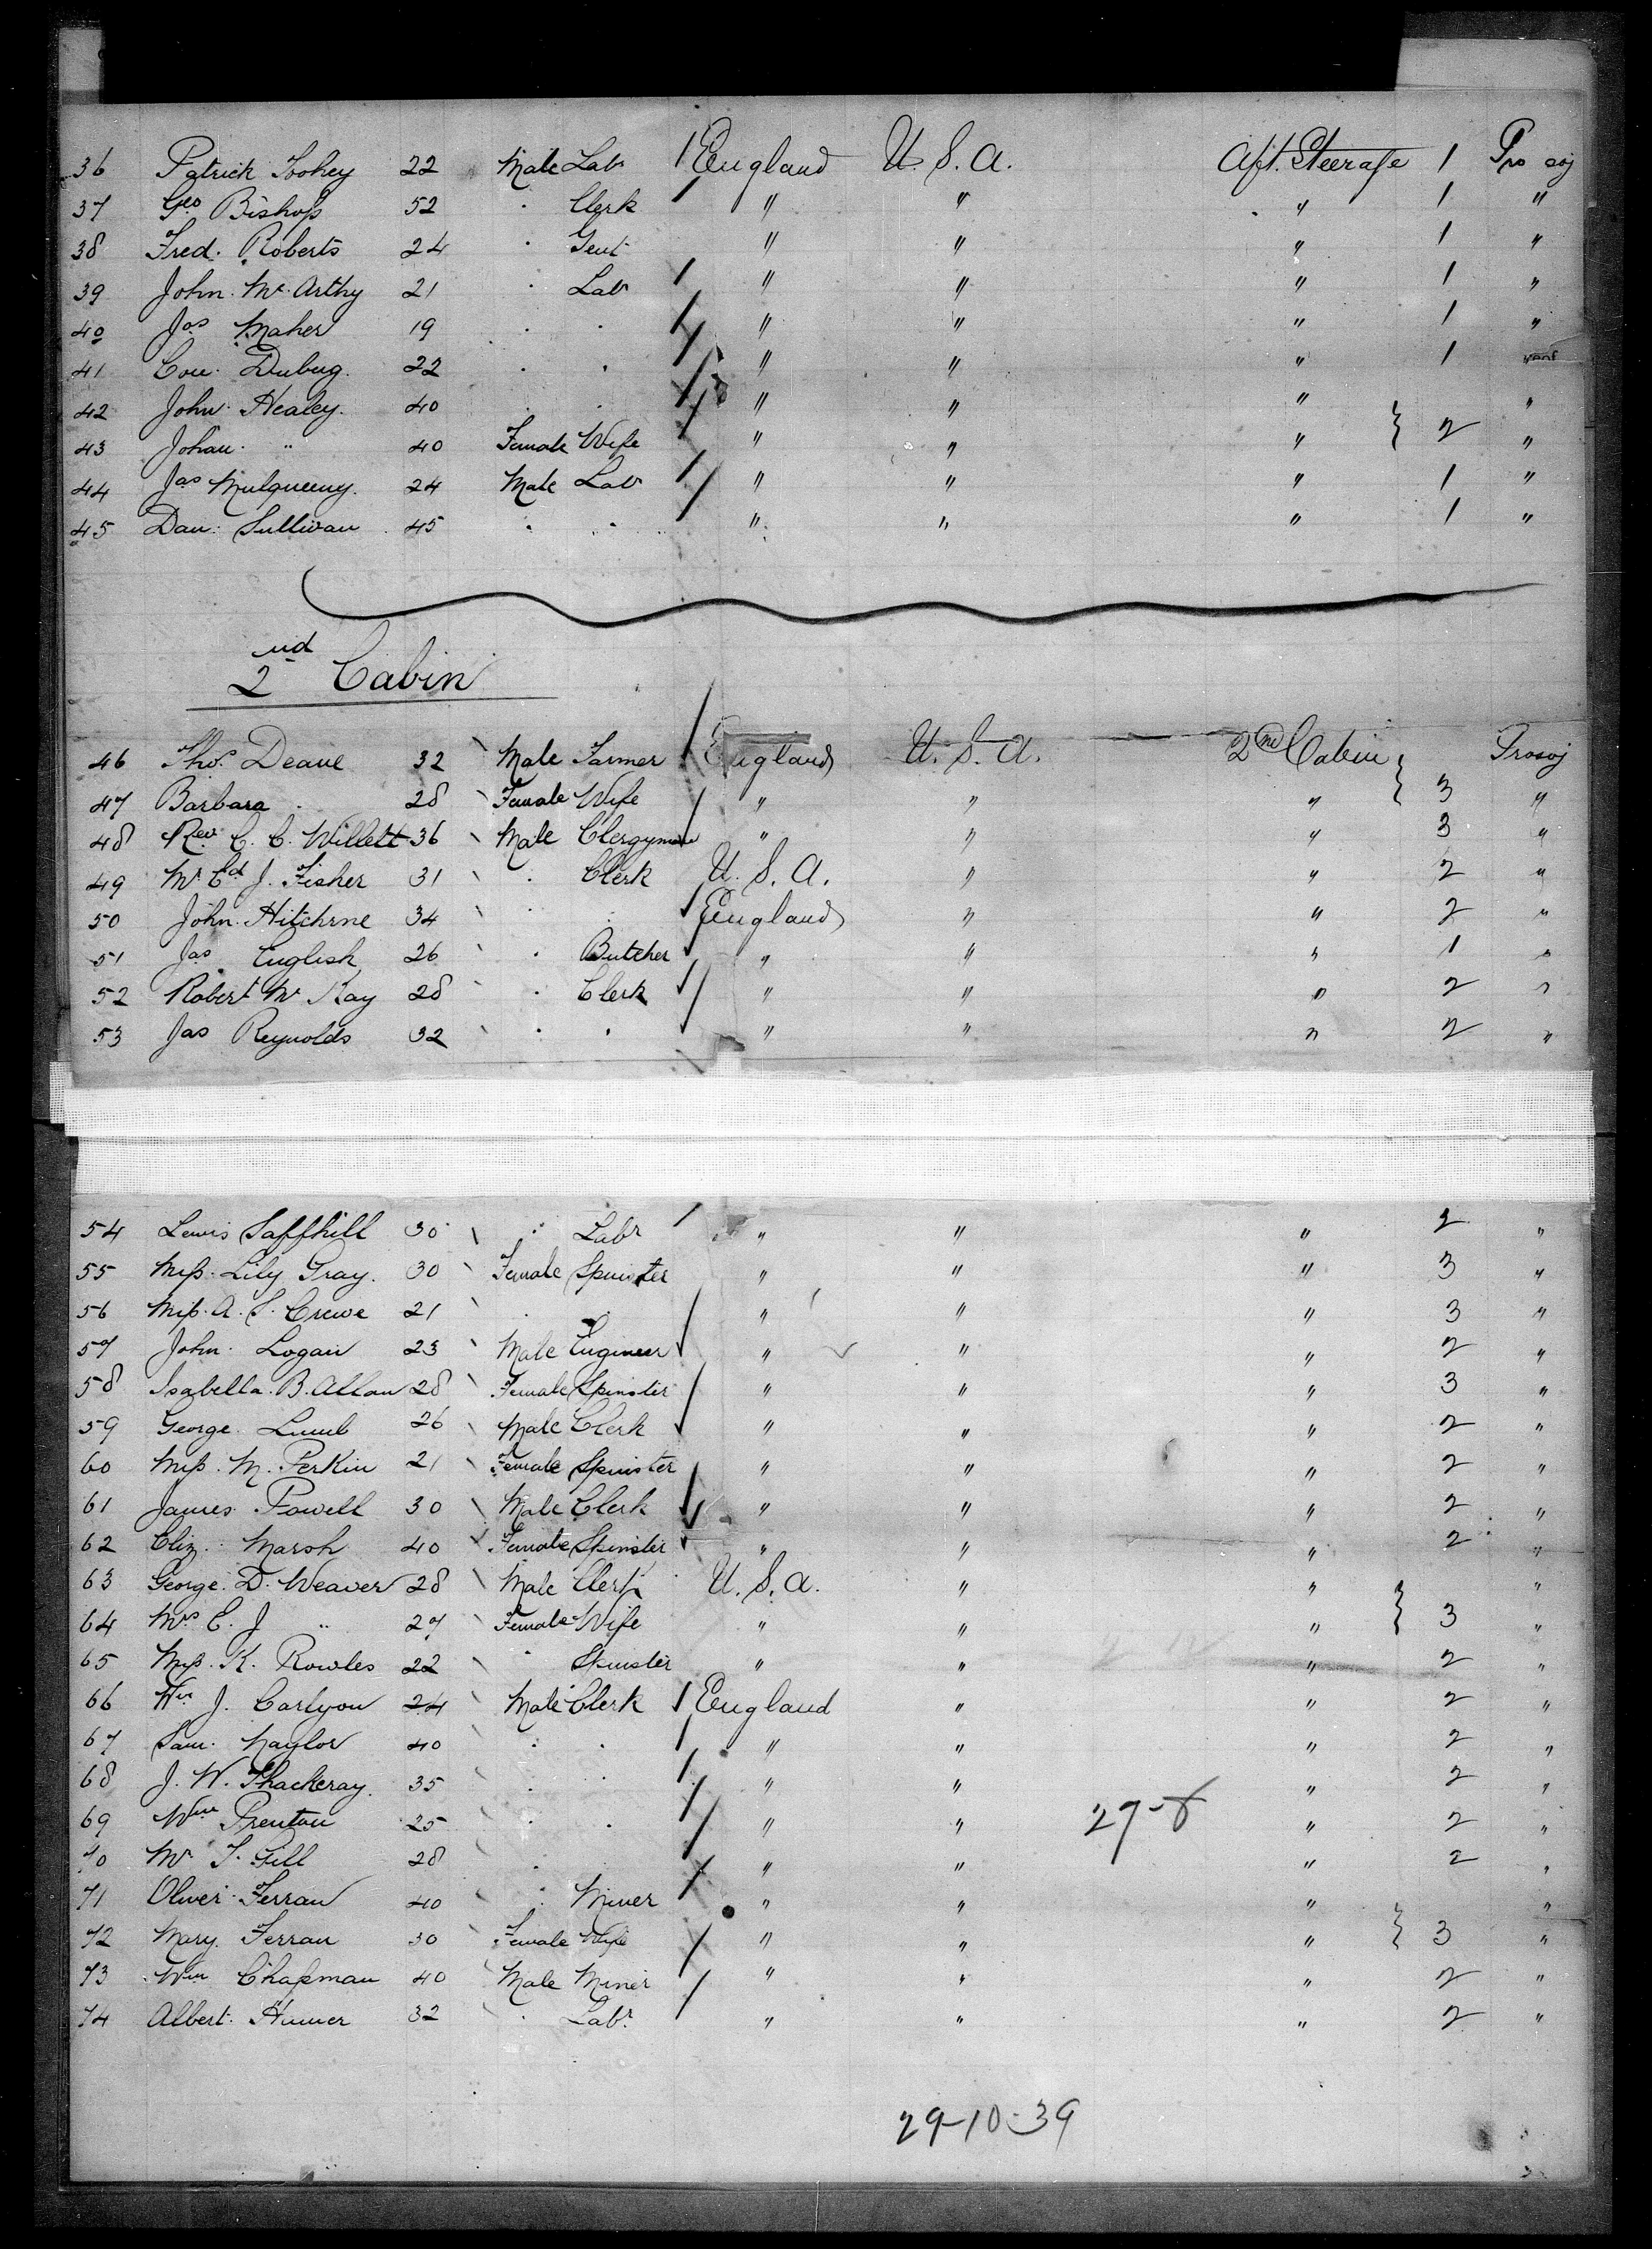 36 Patrick Toohey 22 Male Labr England U.S.A. Aft. Steerage 1 Pro soj
37 Geo Bishop 52 · Clerk " " " 1 "
38 Fred. Roberts 24 · Gent " " " 1 "
39 John McArthy 21 · Labr " " " 1 "
40 Jas Maher 19 · · " " " 1 "
41 Con. 22 · · " " " 1
42 John Healey 40 · · " " " "
43 Johan " 40 Female Wife " " " 2 "
44 Jas Mulqueeny 24 Male Labr " " " 1 "
45 Dan. Sullivan 45 · · " " " 1 "
2nd Cabin
46 Thos. Deane 32 Male Farmer England U.S.A. 2nd Cabin Prosoj
47 Barbara 28 Female Wife " " " 3 "
48 Rev C. C. Willett 36 Male Clergyman " " " 3 "
49 Mr Ed J. Fisher 31 · Clerk U.S.A. " " 2 "
50 John Hitchrne 34 · · England " " 2 "
51 Jas English 26 · Butcher " " " 1 "
52 Robert McKay 28 · Clerk " " " 2 "
53 Jas Reynolds 32 · · " " " 2 "
54 Lewis Saffhill 30 · Labr " " " 2 "
55 Miss Lily Gray 30 Female Spinster " " " 3 "
56 Miss A. S. Crewe 21 · · " " " 3 "
57 John Logan 23 Male Engineer " " " 2 "
58 Isabella B. Allan 28 Female Spinster " " " 3 "
59 George Lumb 26 Male Clerk " " " 2 "
60 Miss M. Perkin 21 Female Spinster " " " 2 "
61 James Powell 30 Male Clerk " " " 2 "
62 Eliz. Marsh 40 Female Spinster " " " 2 "
63 George D. Weaver 28 Male Clerk U.S.A. " " "
64 Mrs E. J " 27 Female Wife " " " 3 "
65 Miss K. Rowles 22 · Spinster " " " 2 "
66 Wm J. Carlyon 24 Male Clerk England " " 2 "
67 Sam. Naylor 40 · · " " " 2 "
68 J. W. Thackeray 35 · · " " " 2 "
69 Wm Prenton 25 · · " " 27-8 " 2 "
70 Mr T. Gill 28 · " " " 2 "
71 Oliver Ferran 40 · Miner " " " "
72 Mary Ferran 30 Female Wife " " " 3 "
73 Wm Chapman 40 Male Miner " " " 2 "
74 Albert Humer 32 · Labr " " " 2 "
29-10-39